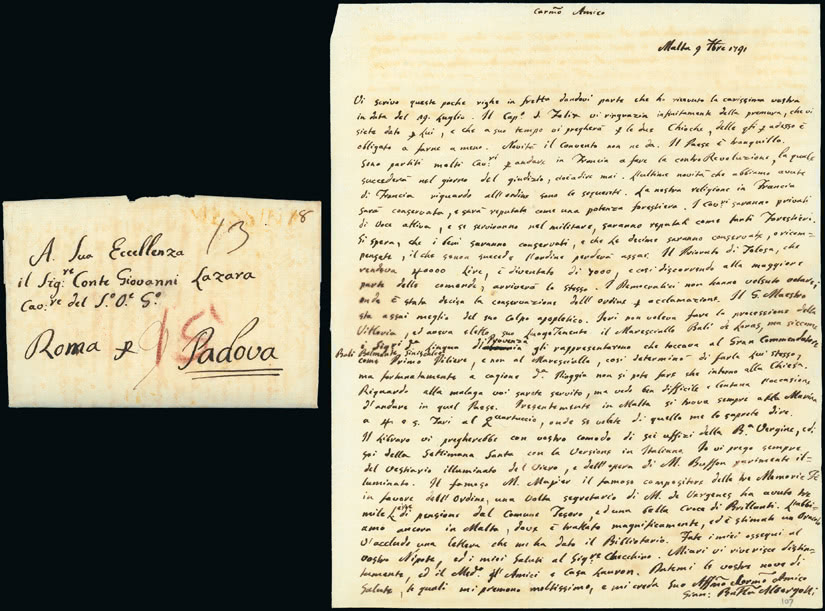 MESSINA
18
13
A Sua Eccellenza
il Sig.re Conte Giovanni Lazara
Cav.re del S.o O.e G.o
15
Roma p Padova
Carmo Amico
Malta 9 7bre 1791
Vi scrivo queste poche righe in fretta dandovi parte che ho ricevuto la carissima vostra
in data del 19 Luglio. Il Cap.o d. Felix vi ringrazia infinitamente della premura, che vi
siete dato p lui, e che a suo tempo vi pregherà p le due Chioche, delle qli p adesso è
obligato a farne a meno. Novità il Convento non ne dà. Il Paese è tranquillo.
Sono partiti molti Cav.ri p andare in Francia a fare la contro Revoluzione, la quale
succederà nel giorno del giudizio, cioè a dire mai. L'ultime novità che abbiamo avute
di Francia riguardo all'ordine sono le seguenti. La nostra religione in Francia
sarà conservata, e sarà reputata come una potenza forestiera. I Cav.ri saranno privati
di voce attiva, e se serviranno nel militare, saranno reputati come tanti Forestieri.
Si spera, che i beni saranno conservati, e che le decime saranno conservate, o ricom-
pensate, il che senza succede l'ordine perderà assai. Il Priorato di Tolosa, che
rendeva 40000 lire, è diventato di 7000, e così discorrendo alla maggiore
parte delle comende, arriverà lo stesso. I Democratici non hanno volsuto votare,
onde è stata decisa la conservazione dell'ordine p acclamazione. Il G. Maestro
sta assai meglio del suo colpo apopletico. Ieri non voleva fare la processione della
Vittoria, ed aveva eletto suo Luogotenente il Maresciallo Balì de Loras, ma siccome
i Sig.ri da Lingua di Provenza gli rappresentarono che toccava al Gran Commendatore
Balì
come Primo Piliere, e non al Maresciallo, così determinò di farla lui stesso,
ma fortunatamente a cagione da Pioggia non si potè fare che intorno alla Chiesa.
Riguardo alla malaga voi sarete servito, ma vedo ben difficile e lontana l'occasione
d'andare in quel Paese. Presentemente in Malta si trova sempre alla Marina
a 4 e 5 Tarì al quartuccio, onde se volete di quella me lo saprete dire.
Il Libraro vi pregherebbe con vostro comodo di sei uffizi della B.a Vergine, ed
sei della Settimana Santa con la Versione in Italiano. Io vi prego sempre
del vestiario illuminato del Viero, e dell'opera di M. Buffon parimente il-
luminato. Il famoso M. Mayer il famoso compositore delle tre Memorie
in favore dell'Ordine, una volta segretario di M. de Vergenes ha avuto tre
mile Lire di pensione dal Comune Tesoro, ed una bella Croce di Brillanti. L'abbi-
amo ancora in Malta, dove è trattato magnificamente, ed è stimato un Oracolo
V'accludo una lettera che mi ha dato il Bibliotario. Fate i miei ossequi al
vostro Nipote, ed i miei Saluti al Sig.re Checchino. Miari vi riverisce distin-
tamente, ed il Med.o gl'Amici e Casa Lauron. Datemi le vostre nove di
Salute, le quali mi premono moltissimo, e mi creda Suo Affmo Amico
Giam: Batta Albergotti
107